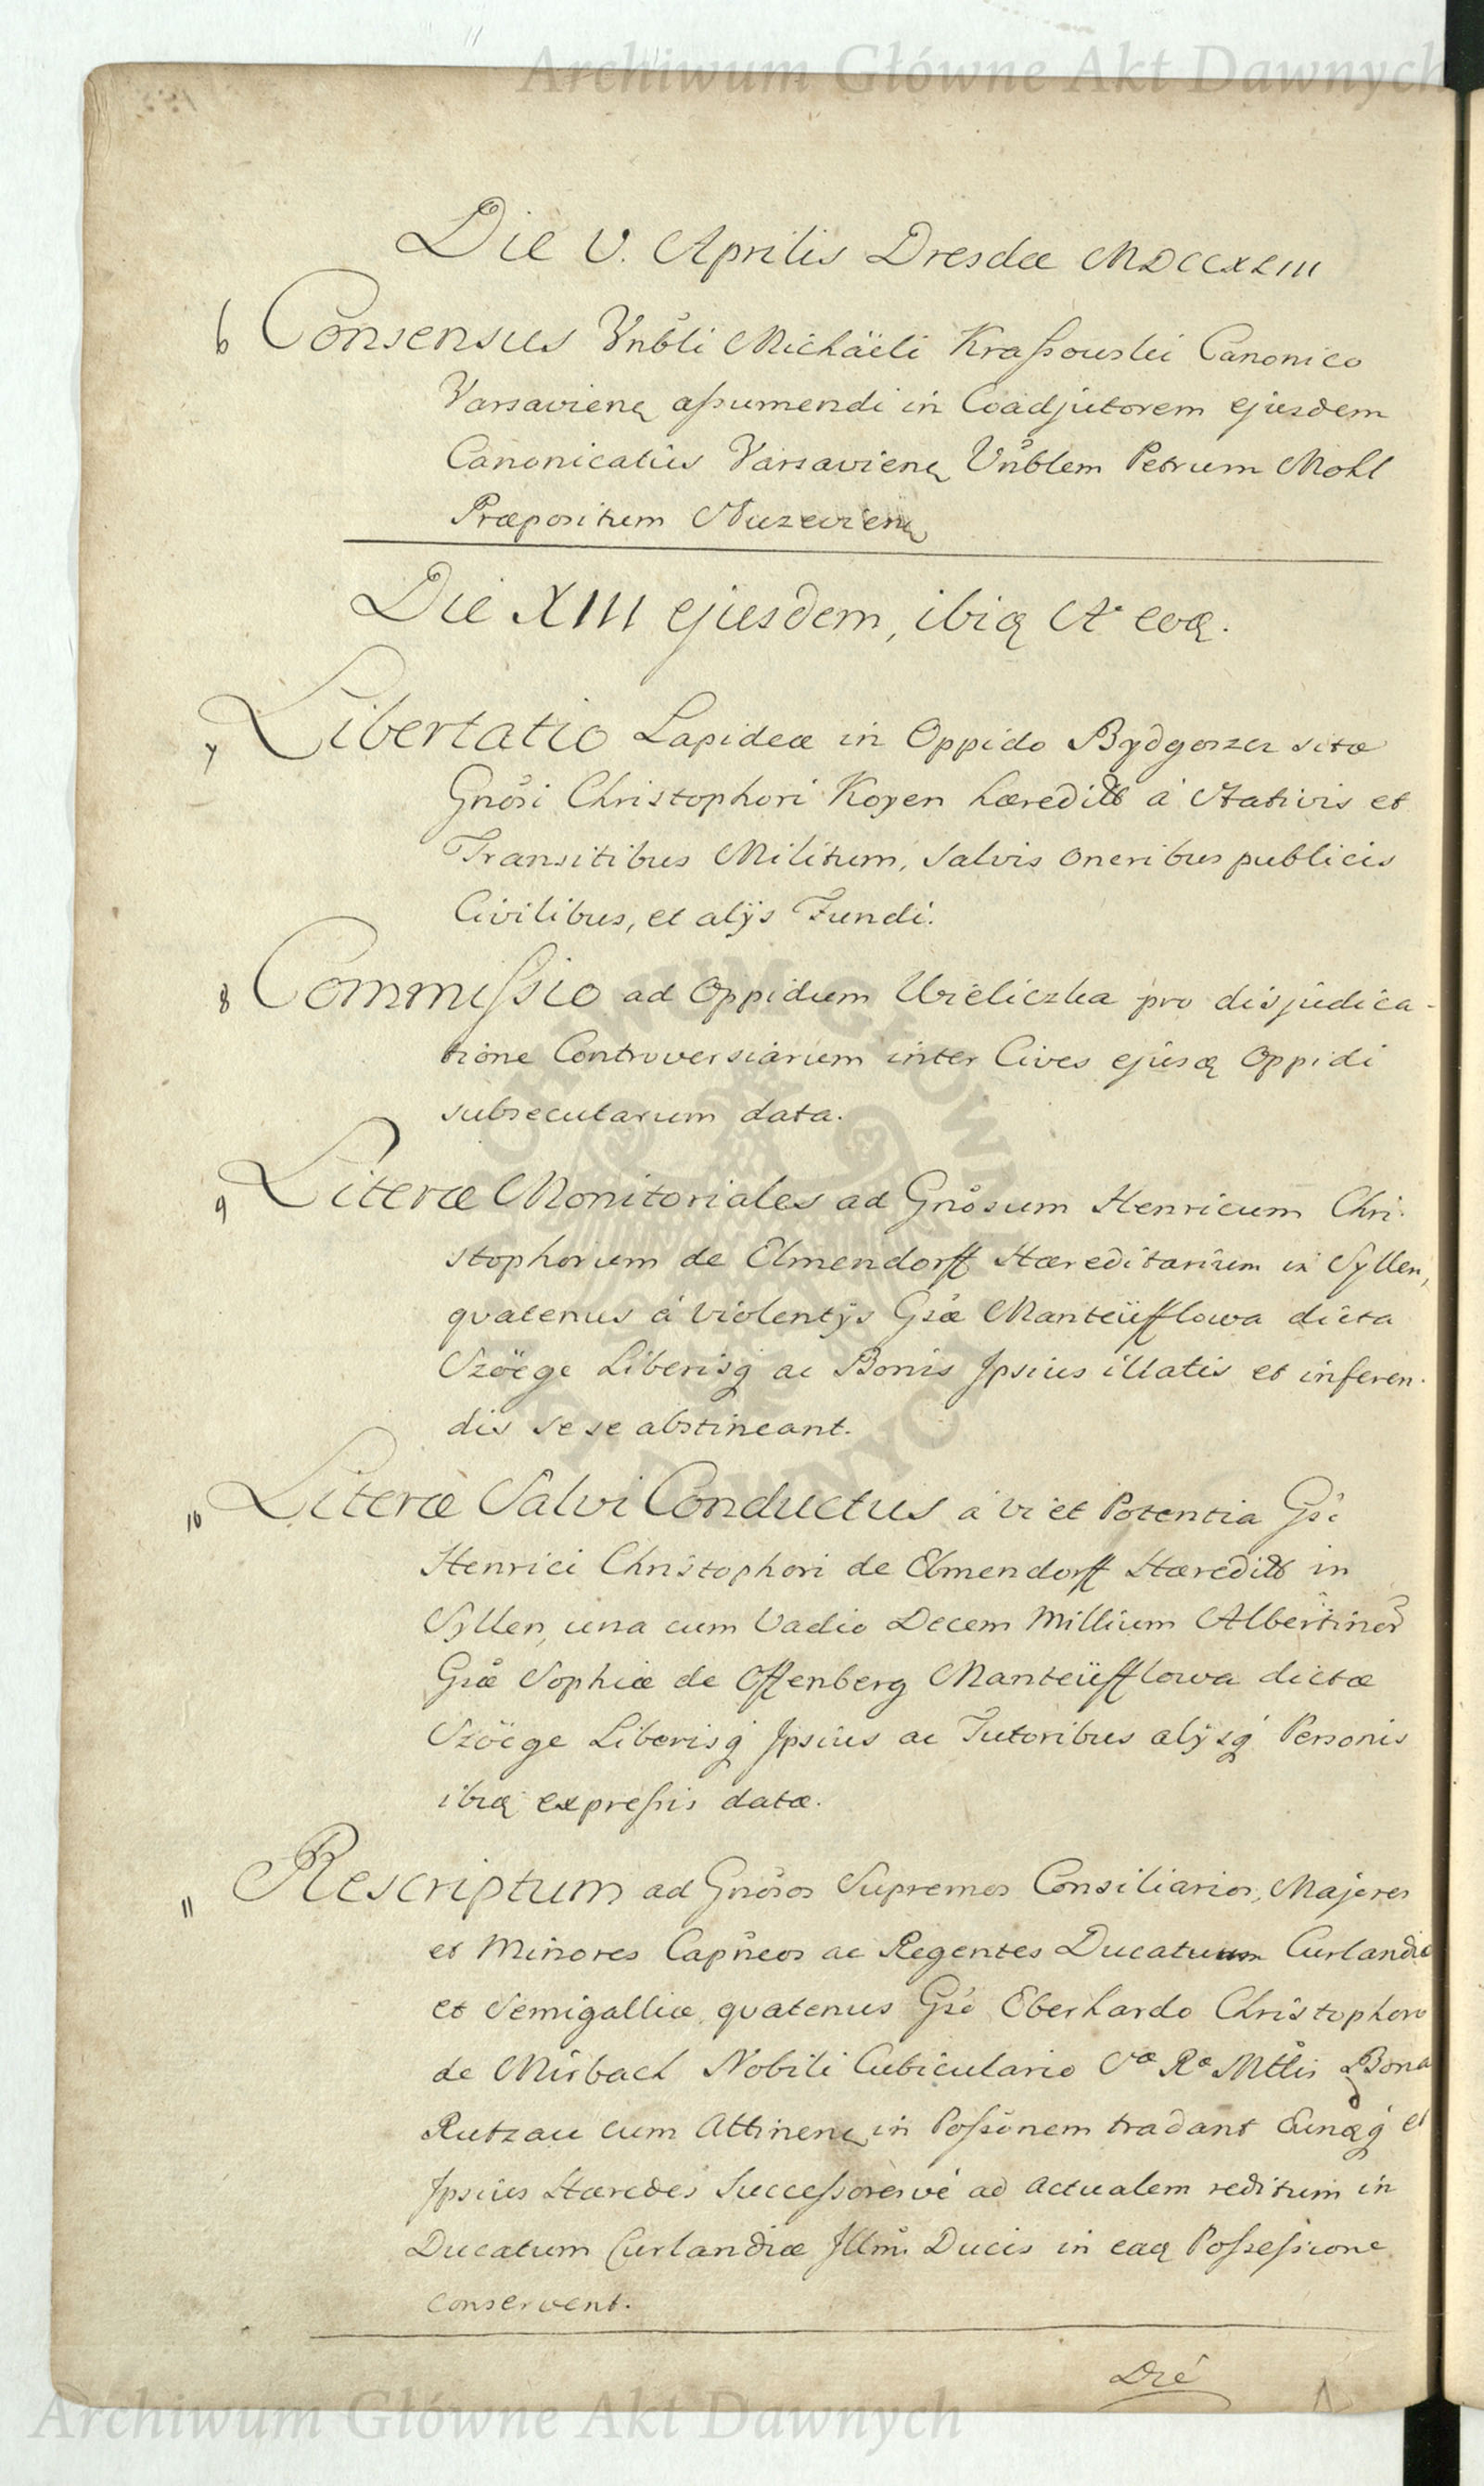 Archiwum Główne Akt Dawnych
Die V. Aprilis Dresdæ MDCCXLIII
6 Consensus Vnbli Michaëli Kraßowski Canonico
Varsavienq aßumendi in Coadjutorem ejusdem
Canonicatûs Varsavienq Vnblem Petrum Mohl
Præpositum
Die XIII ejusdem, ibiq A° eoq.
7 Libertatio Lapideæ in Oppido Bydgoszcz sitæ
Gnosi Christophori Koyen hæredits á Stativis et
Transitibus Militum, salvis oneribus publicis
Civilibus, et alÿs Fundi.
8 Commißio ad Oppidum Wieliczka pro disjudica-
tione Controversiarum inter Cives ejusq Oppidi
subsecutarum data.
9 Literæ Monitoriales ad Gnosum Henricum Chri-
stophorum de Elmendorff Hæreditarium in Syllen,
quatenus á violentÿs Gsæ Manteüfflowa dicta
Szöege Liberisq ac Bonis Jpsius illatis et inferen-
dis se se abstineant.
10 Literæ Salvi Conductus á vi et Potentia Gsi
Henrici Christophori de Elmendorff Hæredits in
Syllen, una cum Vadio Decem Millium Albertinor
Gsæ Sophiæ de Offenberg Manteüfflowa dictæ
Szöege Liberisq Jpsius ac Tutoribus alÿsq Personis
ibiq expreßis datæ.
11 Rescriptum ad Gnosos Supremos Consiliarios, Majores
et Minores Capneos ac Regentes Ducatuum Curlandiæ
et Semigalliæ, quatenus Gso Eberhardo Christophoro
de Mirbach Nobili Cubiculario Sæ Ræ Mttis Bona
Rutzau cum Attinenq in Poßonem tradant Eunqq et
Jpsius Hæredes Succeßoresve ad actualem reditum in
Ducatum Curlandiæ Jllmi Ducis in eaq Poßeßione
conservent.
Die
ARCHIWUM GŁÓWNE AKT DAWNYCH
Archiwum Główne Akt Dawnych